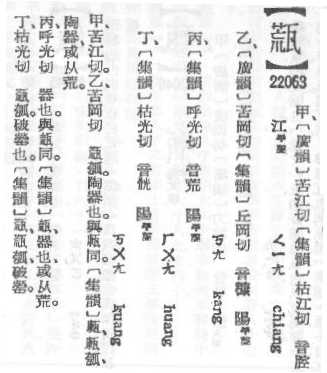 【】
22063
甲、〔廣韻〕苦江切〔集韻〕枯江切 音腔
江平聲 ㄑㄧㄤ chiang
乙、〔廣韻〕苦岡切〔集韻〕丘岡切 音穅 陽平聲
ㄎㄤ kang
丙、〔集韻〕呼光切 音荒 陽平聲
ㄏㄨㄤ huang
丁、〔集韻〕枯光切 音 陽平聲
ㄎㄨㄤ kuang
甲、苦江切乙、苦岡切 陶器也與同〔集韻〕
陶器或从荒。
丙、呼光切 器也與同〔集韻〕器也或从荒。
丁、枯光切 破罌也〔集韻〕破罌。